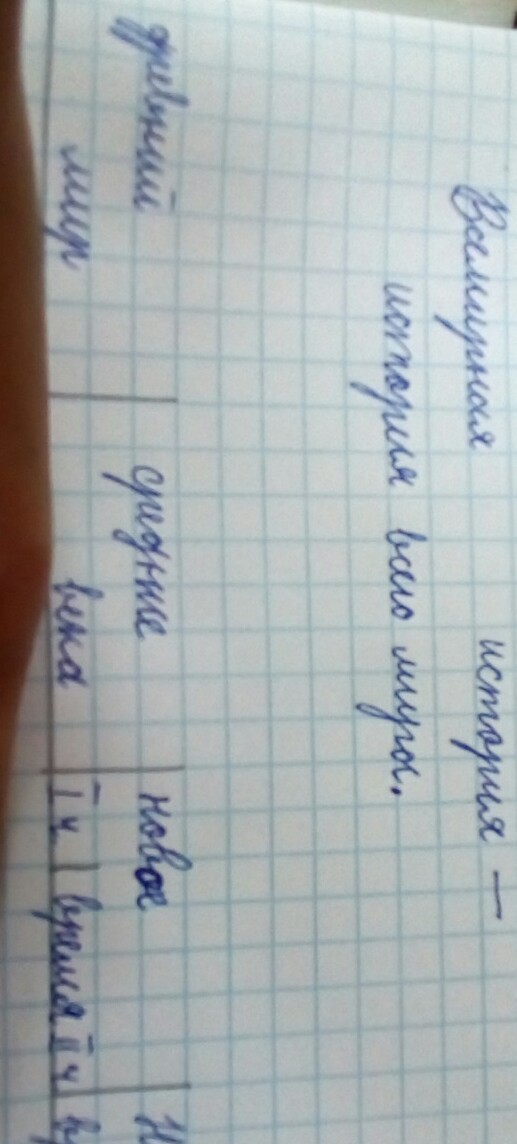 Всемирная история —
история всего мира.
древний средние новое Н
мир века I ч время II ч в